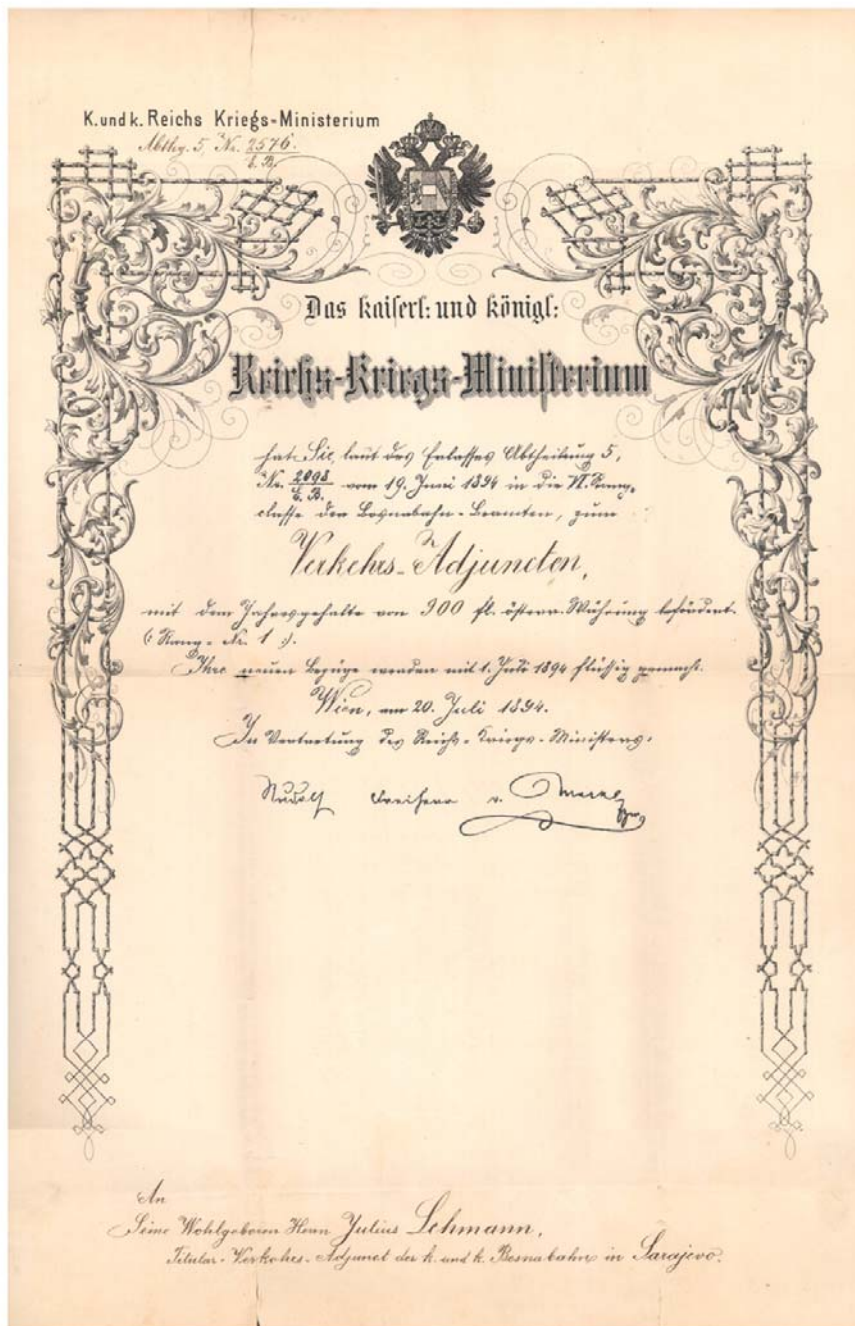 K. und k. Reichs Kriegs-Ministerium
Abthg. 5, No. 2576.
E. B.
Das kaiserl: und königl:
Reichs-Kriegs-Ministerium
hat Sie, laut des Erlasses Abtheilung 5,
No. 2098 / E. B. vom 19. Juni 1894 in die VI. Rang-
classe der Bosnabahn-Beamten, zum
Verkehrs-Adjuncten,
mit dem Jahresgehalte von 900 fl. österr. Währung befördert.
(: Rang-No. 1 :).
Ihre neuen Bezüge werden mit 1. Juli 1894 flüssig gemacht.
Wien, am 20. Juli 1894.
In Vertretung des Reichs-Kriegs-Ministers:
Rudolf Freiherr v. Merkl
An
Seine Wohlgeboren Herrn Julius Lehmann,
Titular-Verkehrs-Adjunct der k. und k. Bosnabahn in Sarajevo.